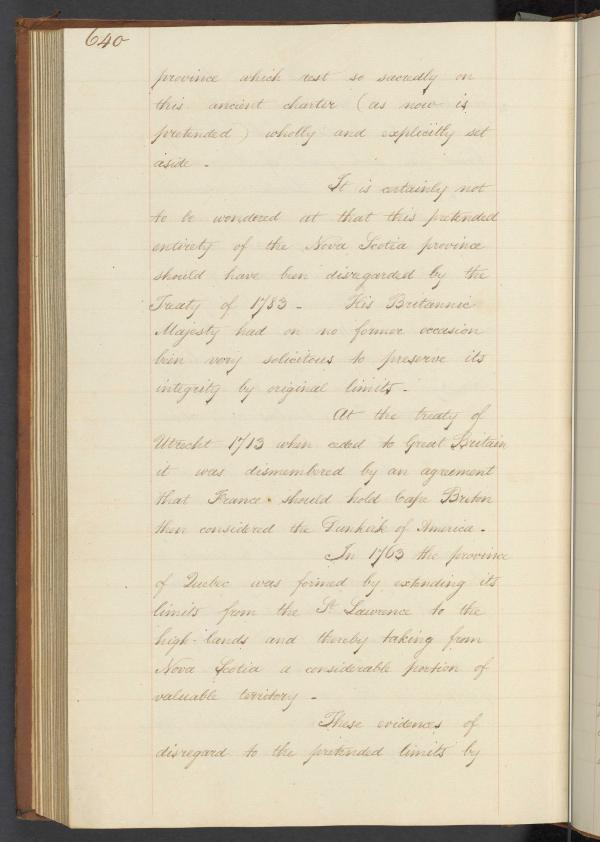 640
province which rest so sacredly on
this ancient charter (as now is
pretended) wholly and explicitly set
aside -
It is certainly not
to be wondered at that this pretended
entirety of the Nova Scotia province
should have been disregarded by the
Treaty of 1783 - His Britannic
Majesty had on no former occasion
been very solicitous to preserve its
integrity by original limits -
At the treaty of
Utrecht 1713 when ceded to Great Britain
it was dismembered by an agreement
that France should hold Cape Breton
then considered the Dunkirk of America -
In 1763 the province
of Quebec was formed by extending its
limits from the St Lawrence to the
high-lands and thereby taking from
Nova Scotia a considerable portion of
valuable territory -
These evidences of
disregard to the pretended limits by